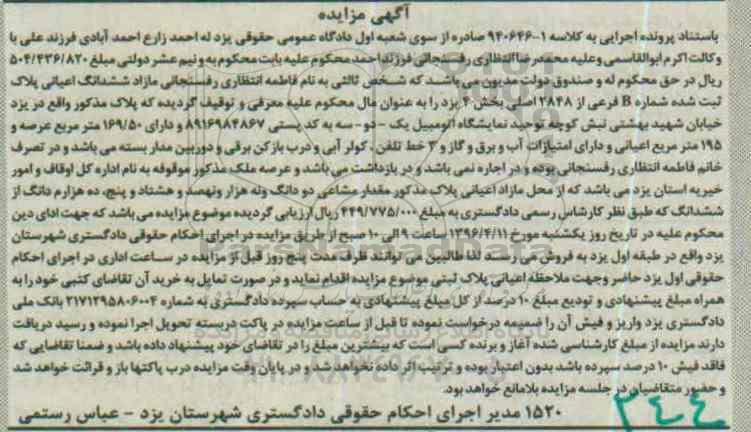 آگهی مزایده
باستناد پرونده اجرایی به کلاسه ۱-۹۴۰۶۴۶ صادره از سوی شعبه اول دادگاه عمومی حقوقی یزد له احمد زارع احمد آبادی فرزند علی با
وکالت اکرم ابوالقاسمی وعلیه محمدرضا انتظاری رفسنجانی فرزند احمد محکوم علیه بابت محکوم به و نیم عشر دولتی مبلغ ۵۰۴/۴۳۶/۸۲۰
ریال در حق محکوم له و صندوق دولت مدیون می باشد که شخص ثالثی به نام فاطمه انتظاری رفسنجانی مازاد ششدانگ اعیانی پلاک
ثبت شده شماره B فرعی از ۲۸۴۸ اصلی بخش ۴ یزد را به عنوان مال محکوم علیه معرفی و توقیف گردیده که پلاک مذکور واقع در یزد
خیابان شهید بهشتی نبش کوچه توحید نمایشگاه اتومبیل یک - دو- سه به کد پستی ۸۹۱۶۹۸۴۸۶۷ و دارای ۱۶۹/۵۰ متر مربع عرصه و
۱۹۵ متر مربع اعیانی و دارای امتیازات آب و برق و گاز و ۳ خط تلفن ، کولر آبی و درب بازکن برقی و دوربین مدار بسته می باشد و در تصرف
خانم فاطمه انتظاری رفسنجانی بوده و در اجاره نمی باشد و در بازداشت می باشد و عرصه ملک مذکور موقوفه به نام اداره کل اوقاف و امور
خیریه استان یزد می باشد که از محل مازاد اعیانی پلاک مذکور مقدار مشاعی دو دانگ ونه هزار ونهصد و هشتاد و پنج، ده هزارم دانگ از
ششدانگ که طبق نظر کارشناس رسمی دادگستری به مبلغ ۴۴۹/۷۷۵/۰۰۰ ریال ارزیابی گردیده موضوع مزایده می باشد که جهت ادای دین
محکوم علیه در تاریخ روز یکشنبه مورخ ۱۳۹۶/۴/۱۱ ساعت ۹ الی ۱۰ صبح از طریق مزایده در اجرای احکام حقوقی دادگستری شهرستان
یزد واقع در طبقه اول یزد به فروش می رسد لذا طالبین می توانند ظرف مدت پنج روز قبل از مزایده در ساعت اداری در اجرای احکام
حقوقی اول یزد حاضر وجهت ملاحظه اعیانی پلاک ثبتی موضوع مزایده اقدام نماید و در صورت تمایل به خرید آن تقاضای کتبی خود را به
همراه مبلغ پیشنهادی و تودیع مبلغ ۱۰ درصد از کل مبلغ پیشنهادی به حساب سپرده دادگستری به شماره ۲۱۷۱۲۹۵۸۰۶۰۰۴ بانک ملی
دادگستری یزد واریز و فیش آن را ضمیمه درخواست نموده تا قبل از ساعت مزایده در پاکت دربسته تحویل اجرا نموده و رسید دریافت
دارند مزایده از مبلغ کارشناسی شده آغاز و برنده کسی است که بیشترین مبلغ را در تقاضای خود پیشنهاد داده باشد و ضمنا تقاضایی که
فاقد فیش ۱۰ درصد سپرده باشد بدون اعتبار بوده و ترتیب اثر داده نخواهد شد و در پایان وقت مزایده درب پاکتها باز و قرائت خواهد شد
و حضور متقاضیان در جلسه مزایده بلامانع خواهد بود.
۱۵۲۰ مدیر اجرای احکام حقوقی دادگستری شهرستان یزد - عباس رستمی
۳۴۴